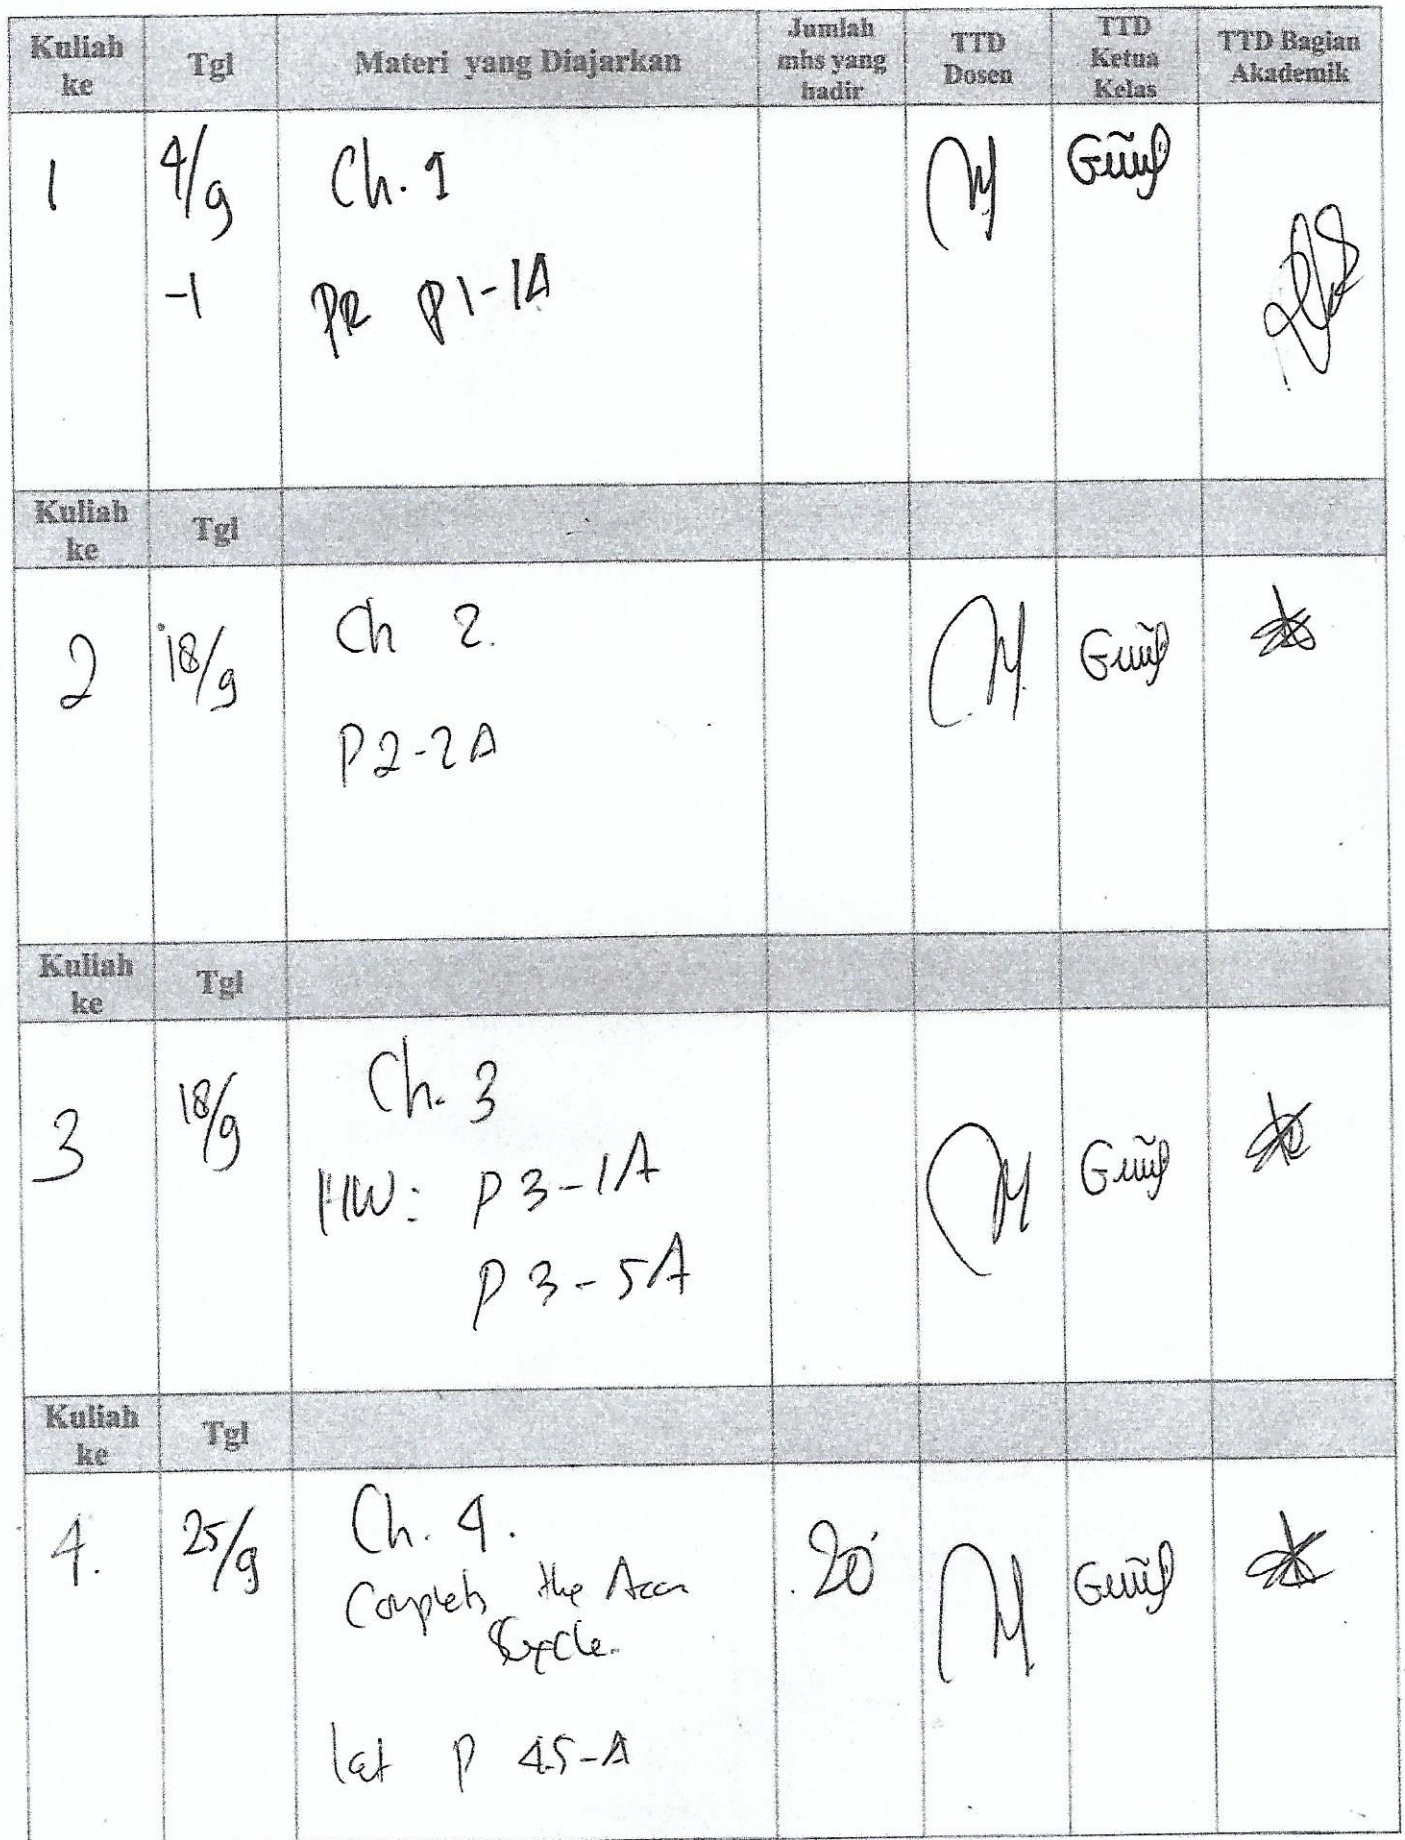 Kuliah ke Tgl Materi yang Diajarkan Jumlah mhs yang hadir TTD Dosen TTD Ketua Kelas TTD Bagian Akademik
1 4/9 Ch. 1
-1 PR P1-1A
Kuliah ke Tgl
2 18/9 Ch 2.
P2-2A
Kuliah ke Tgl
3 18/9 Ch. 3
HW: P3-1A
P3-5A
Kuliah ke Tgl
4. 25/9 Ch. 4. 20
the
Cycle.
P 4.5-A